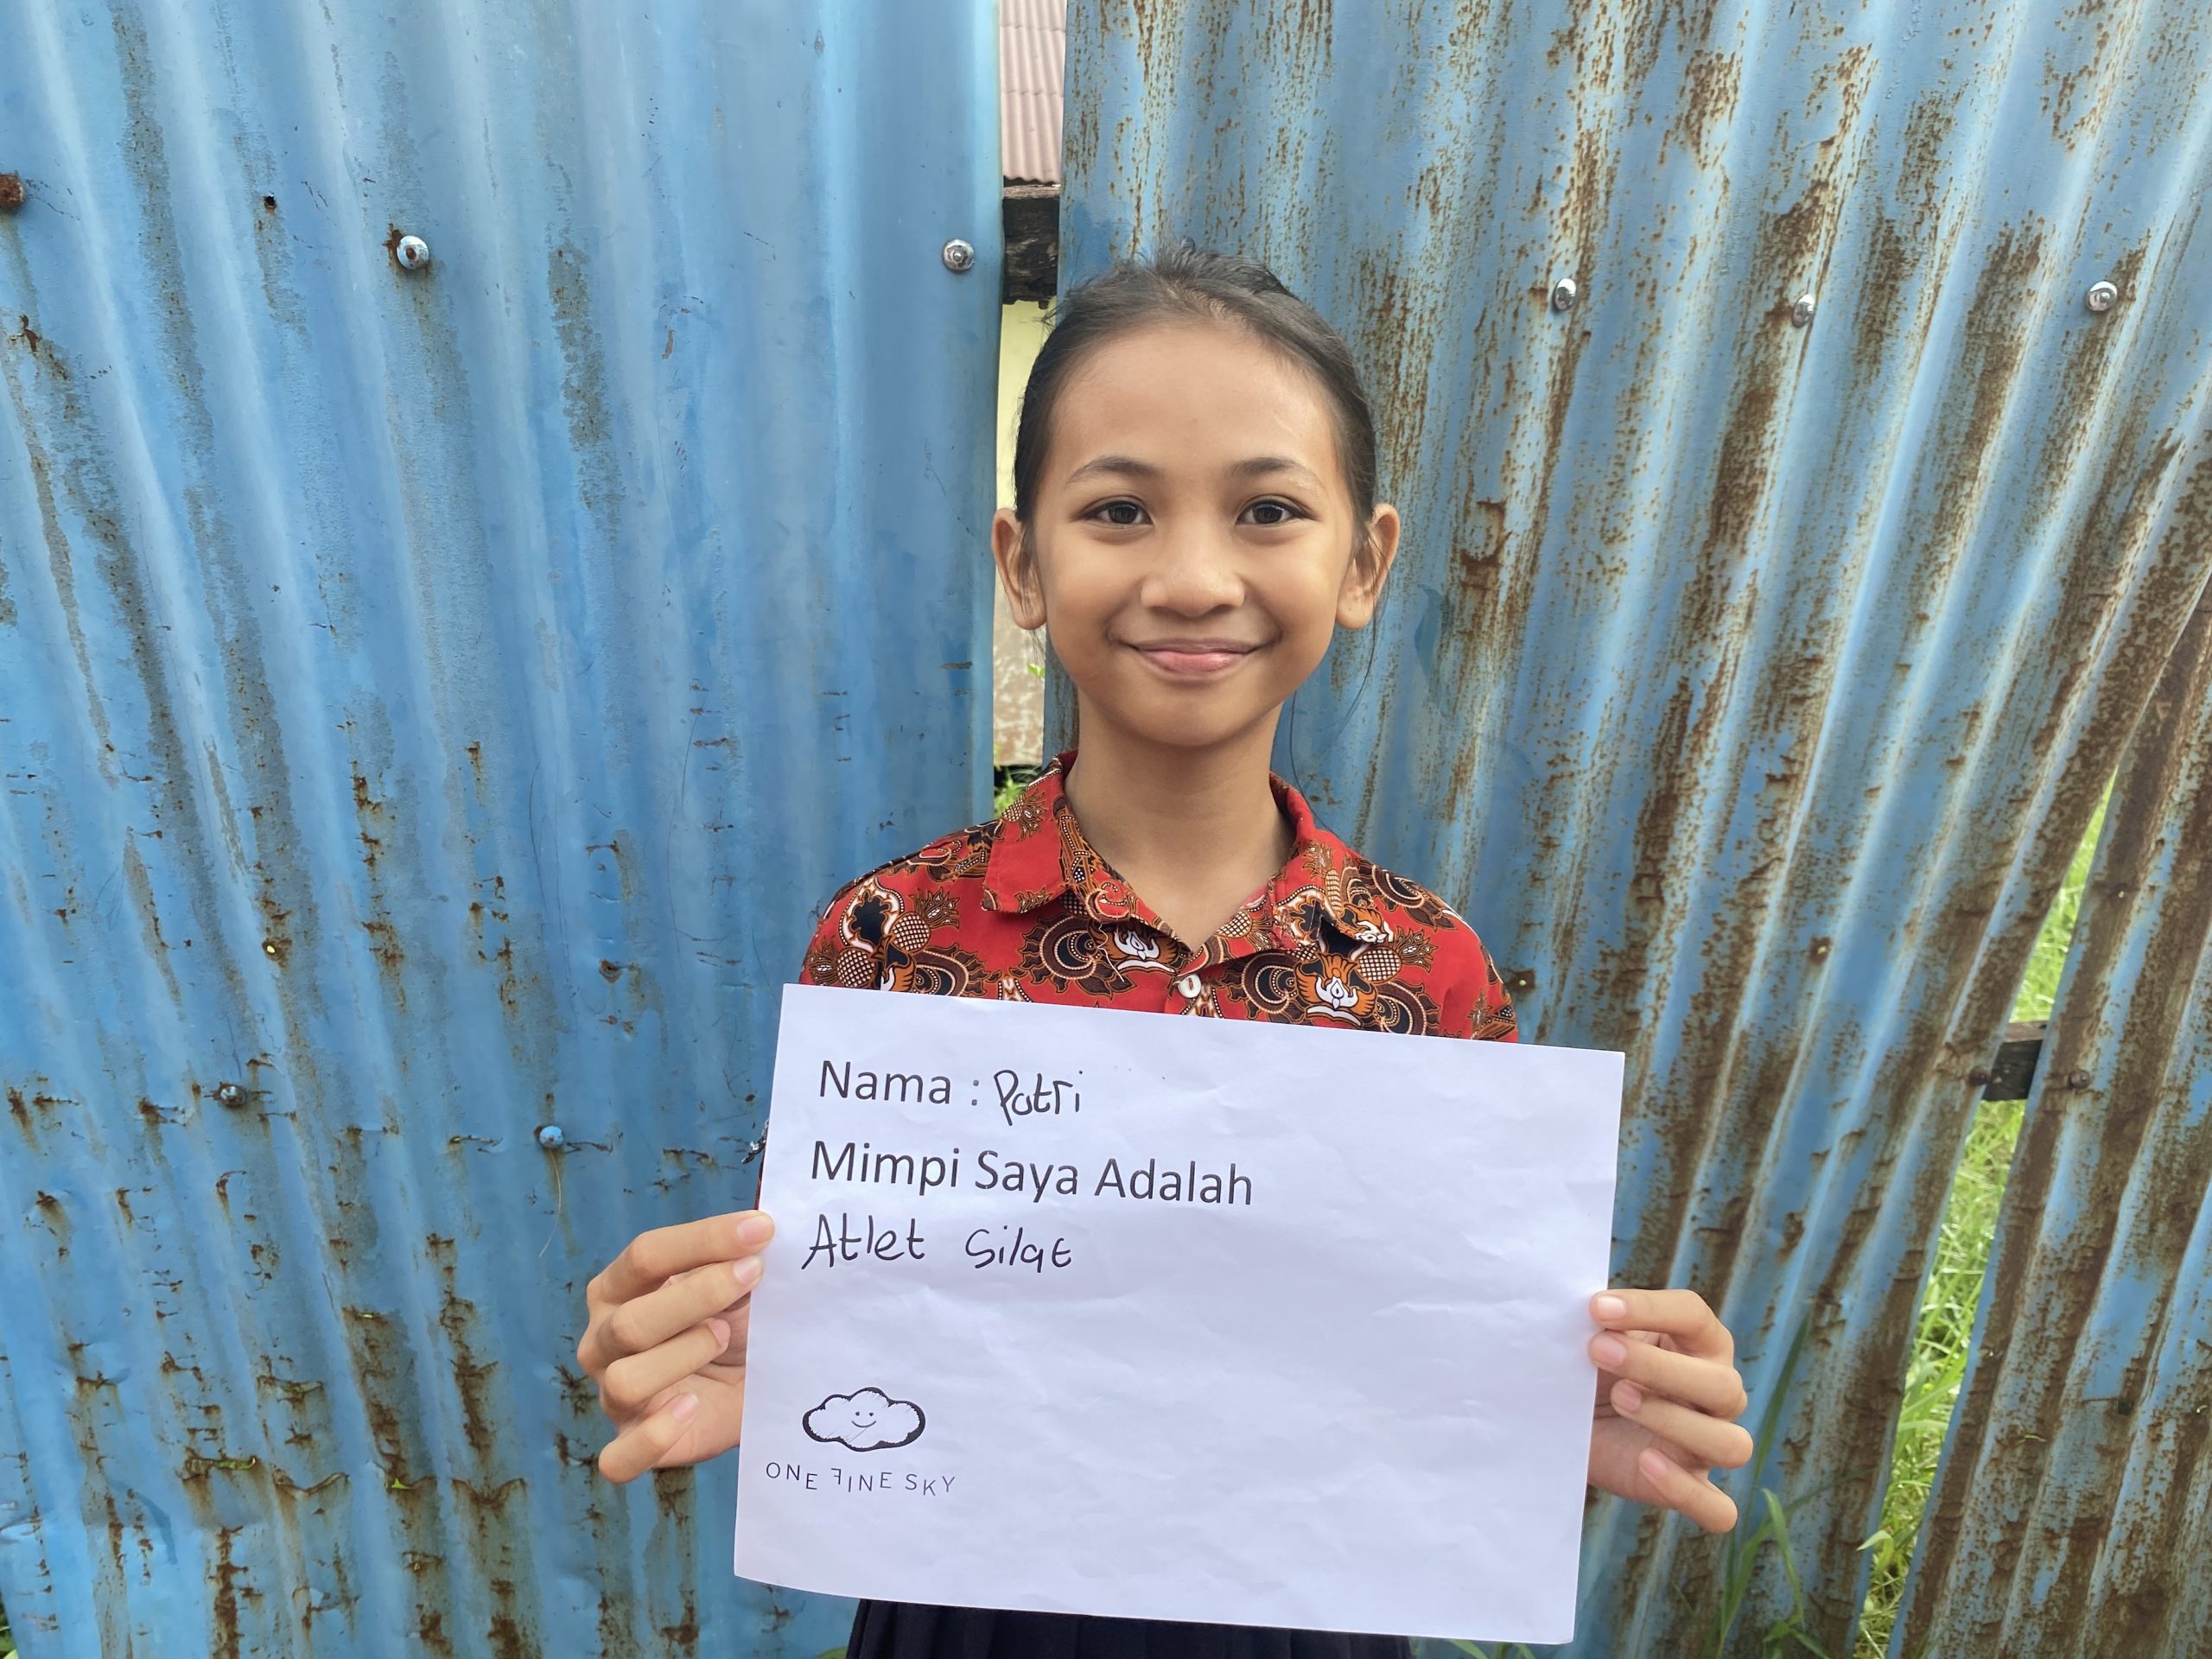 Nama : Putri
Mimpi Saya Adalah
Atlet Silat
ONE FINE SKY